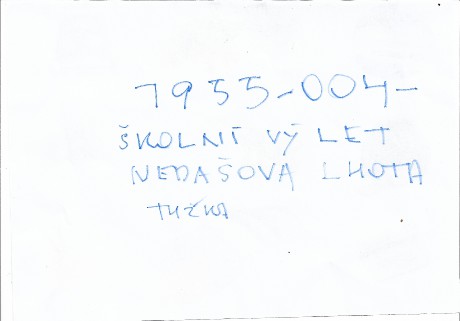 1955-004-
ŠKOLNÍ VÝLET
NEDAŠOVA LHOTA
TUŽKA